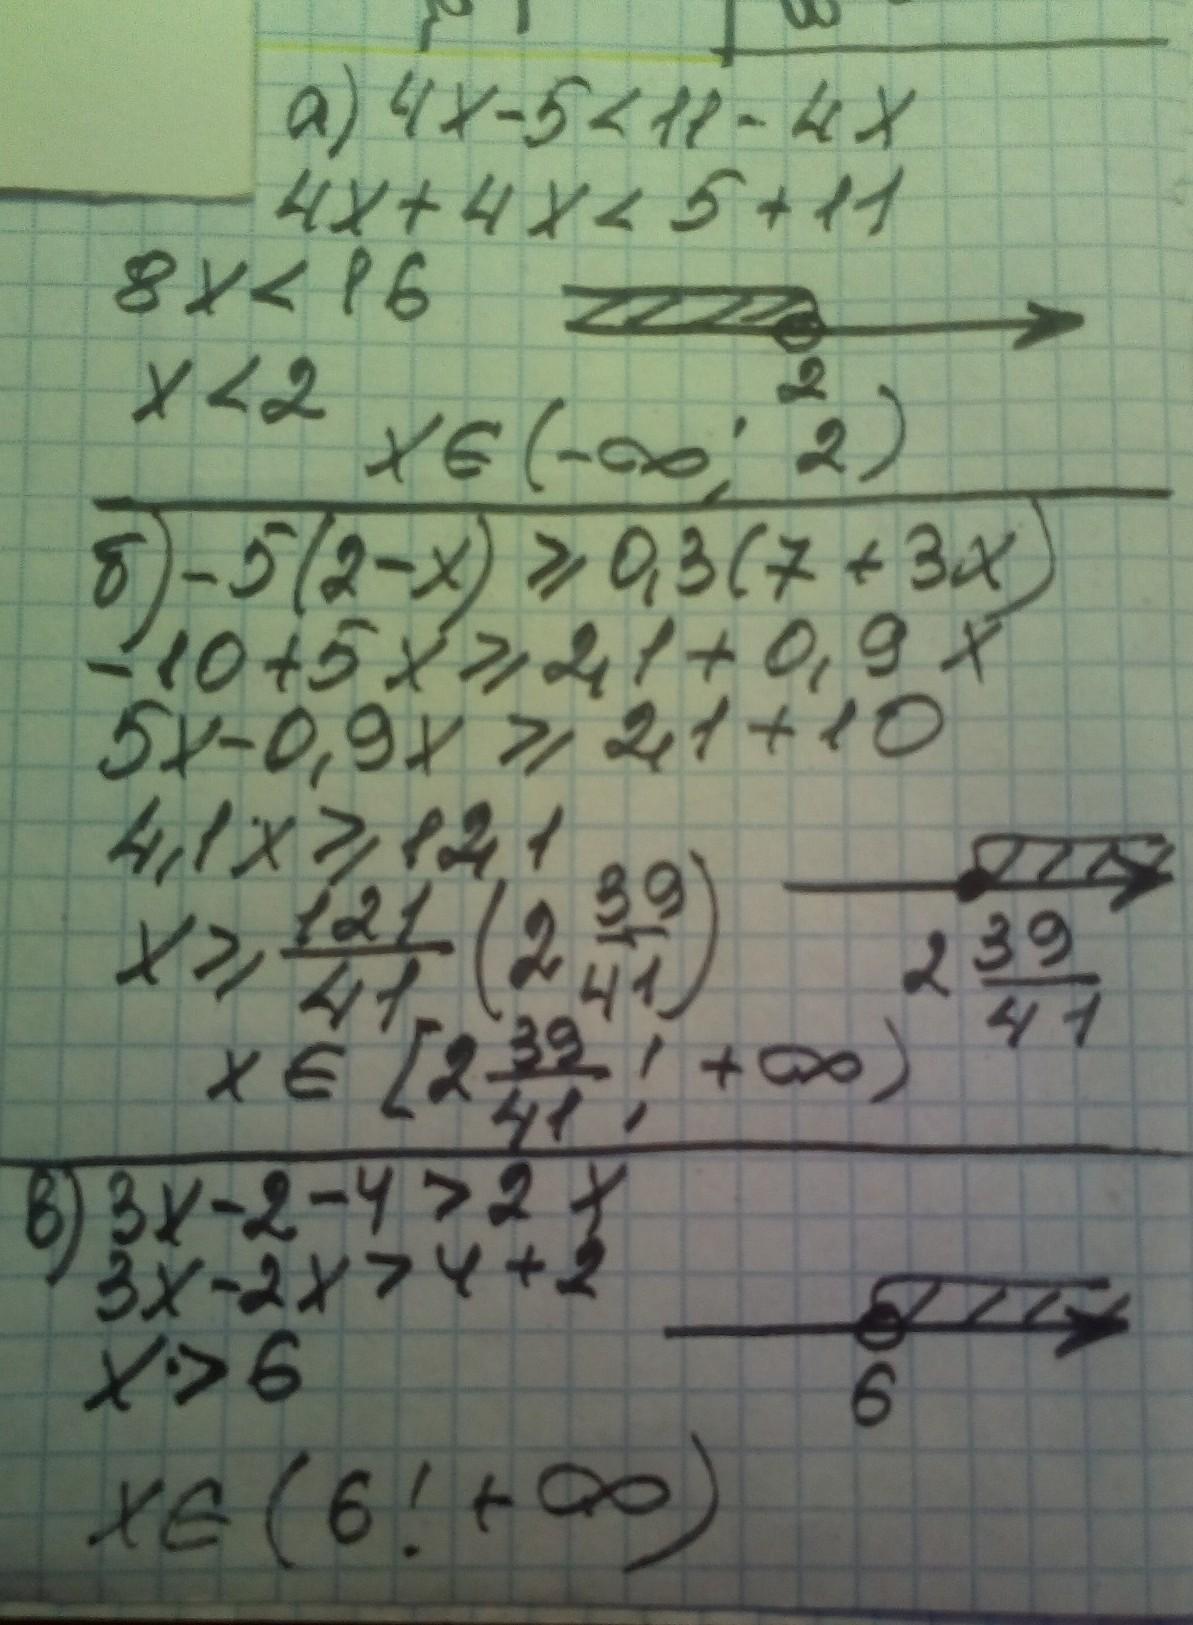 а) 4x-5<11-4x
4x+4x<5+11
8x<16
x<2
2
x∈(-∞; 2)
б) -5(2-x)⩾0,3(7+3x)
-10+5x⩾2,1+0,9x
5x-0,9x⩾2,1+10
4,1x⩾12,1
x⩾121/41 (2 39/41)
2 39/41
x∈[2 39/41; +∞)
в) 3x-2-4>2x
3x-2x>4+2
x>6
6
x∈(6; +∞)